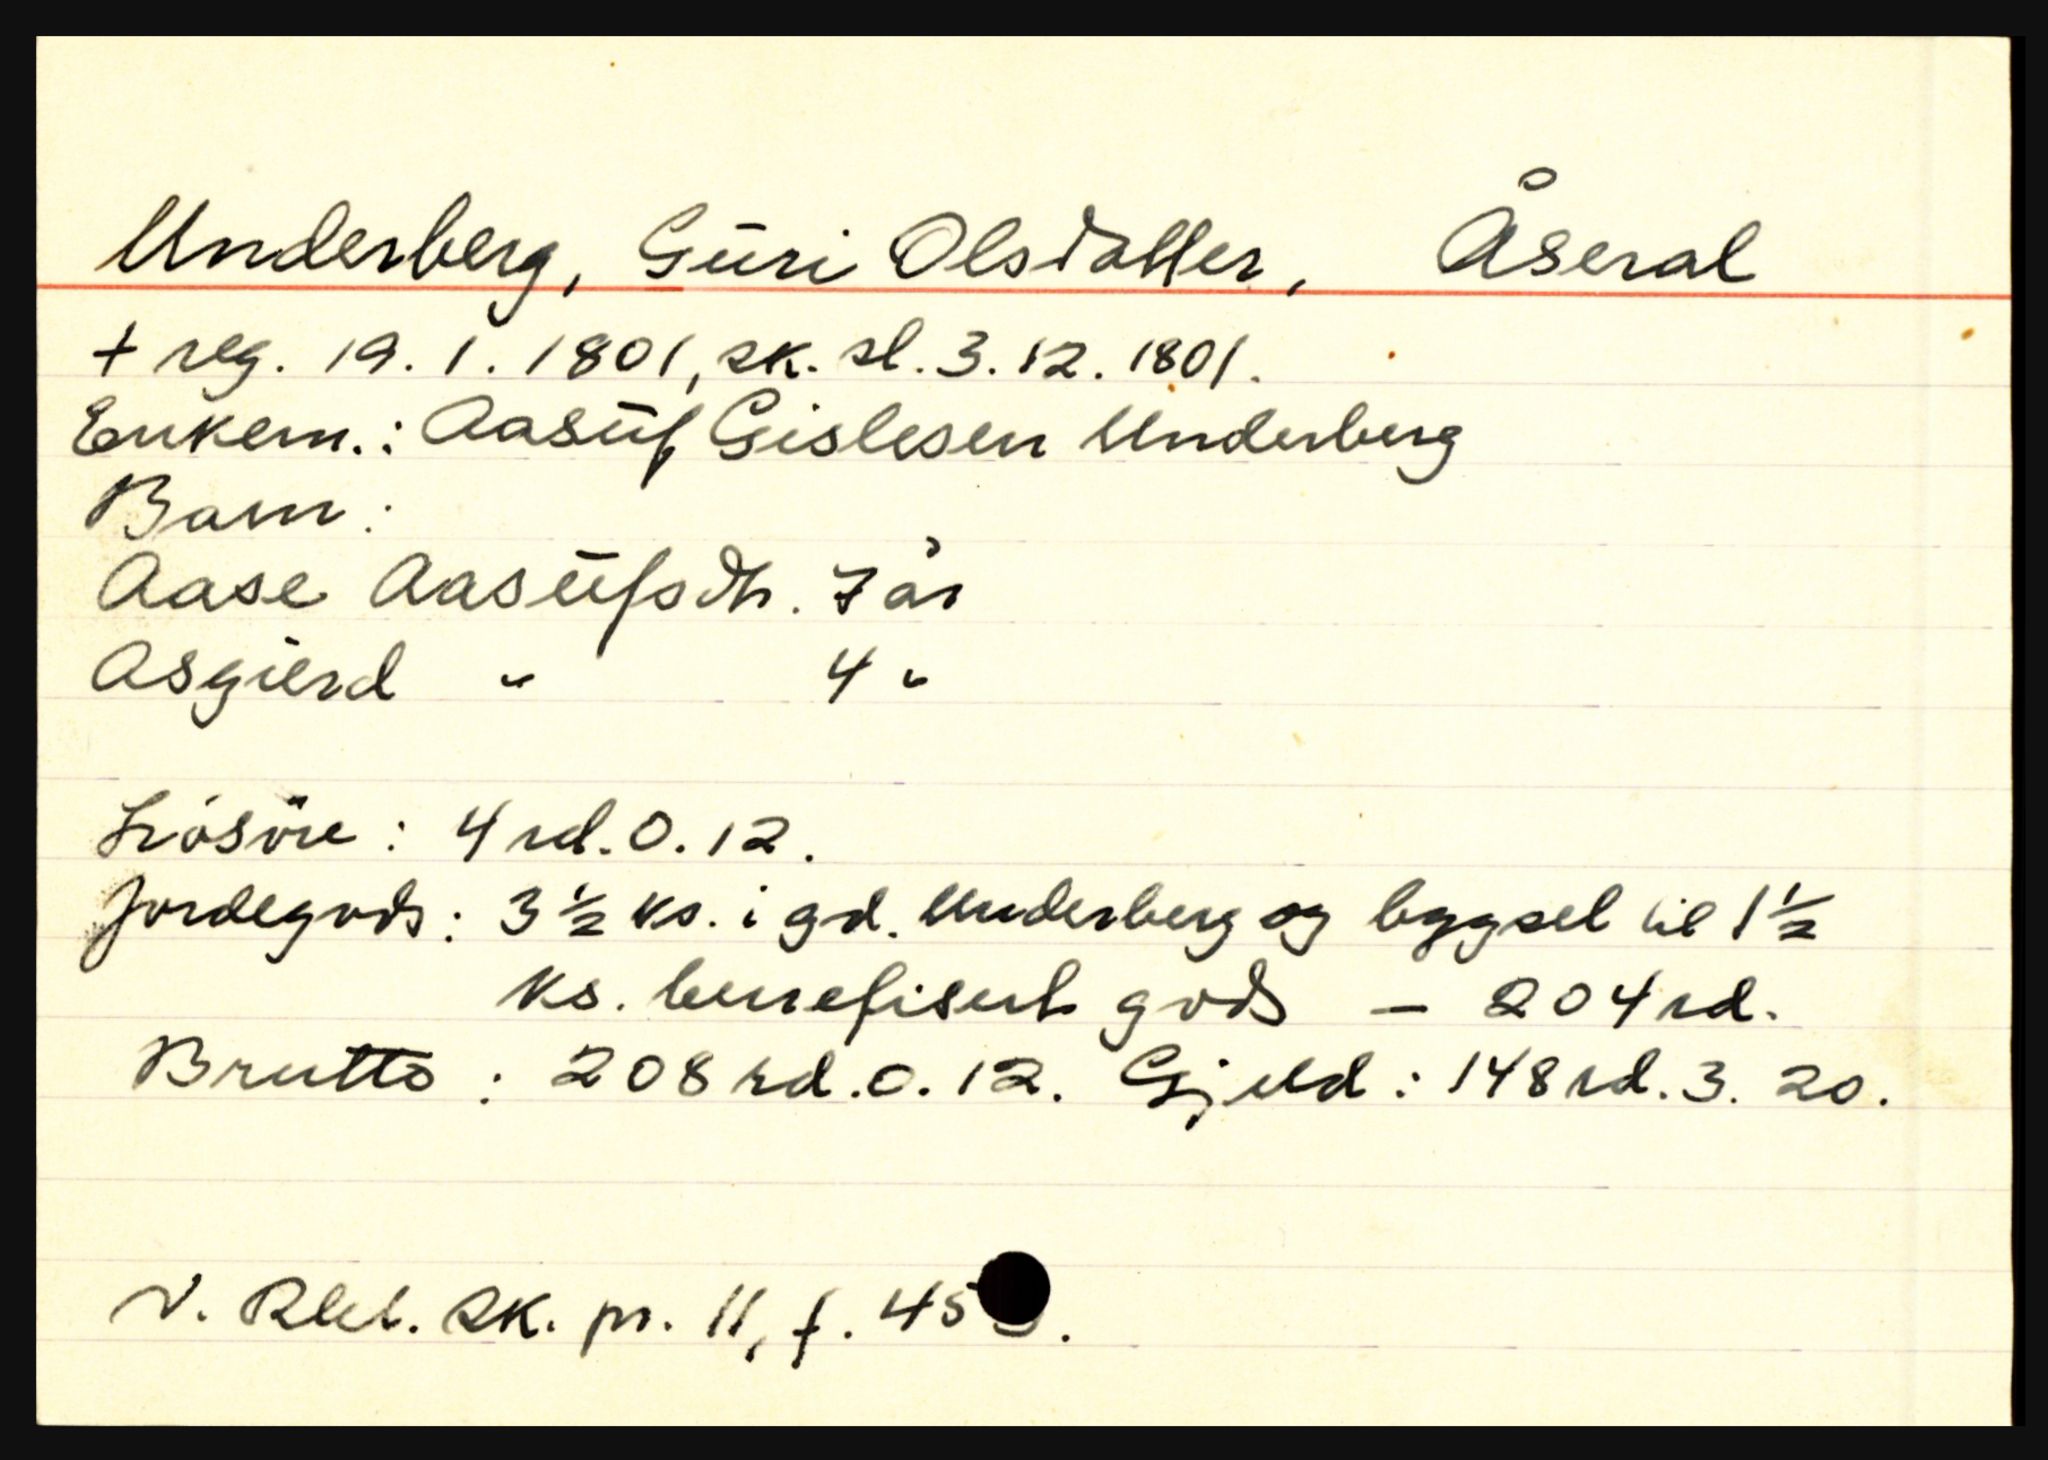 Underberg, Guri Olsdatter, Åseral
+ reg. 19.1.1801, sk. sl. 3.12.1801.
Enkem.: Aasuf Gislesen Underberg
Barn:
Aase Aasufsdtr. 7 år
Asgierd " 4 "
Lösöre: 4 rd. 0. 12.
Jordegods: 3 1/2 ks. i gd. Underberg og bygsel til 1 1/2
ks. benefisert gods - 204 rd.
Brutto: 208 rd. 0. 12. Gjeld: 148 rd. 3. 20.
V. Rbl. sk. pr. 11, f. 45